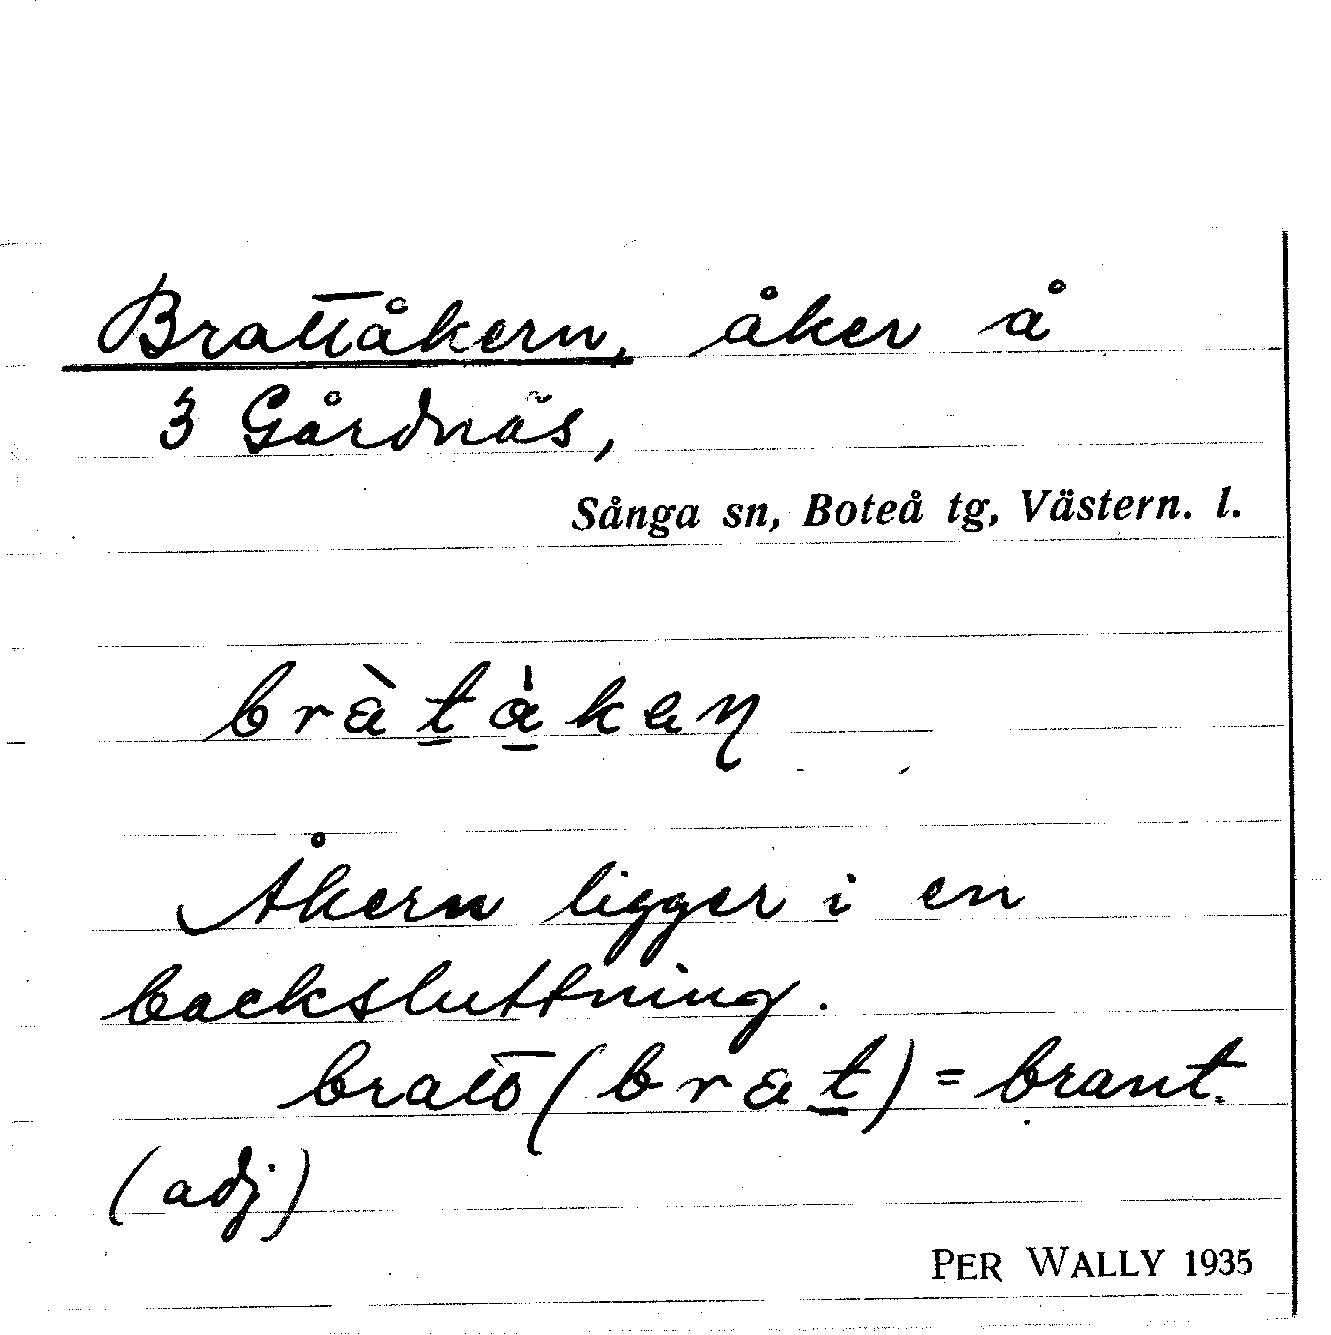 Brattåkern, åker å
3 Gårdnäs,
Sånga sn, Boteå tg, Västern. l.
bràt̲å̲ken
Åkern ligger i en
backsluttning.
bratt (brat̲) = brant.
(adj)
PER WALLY 1935